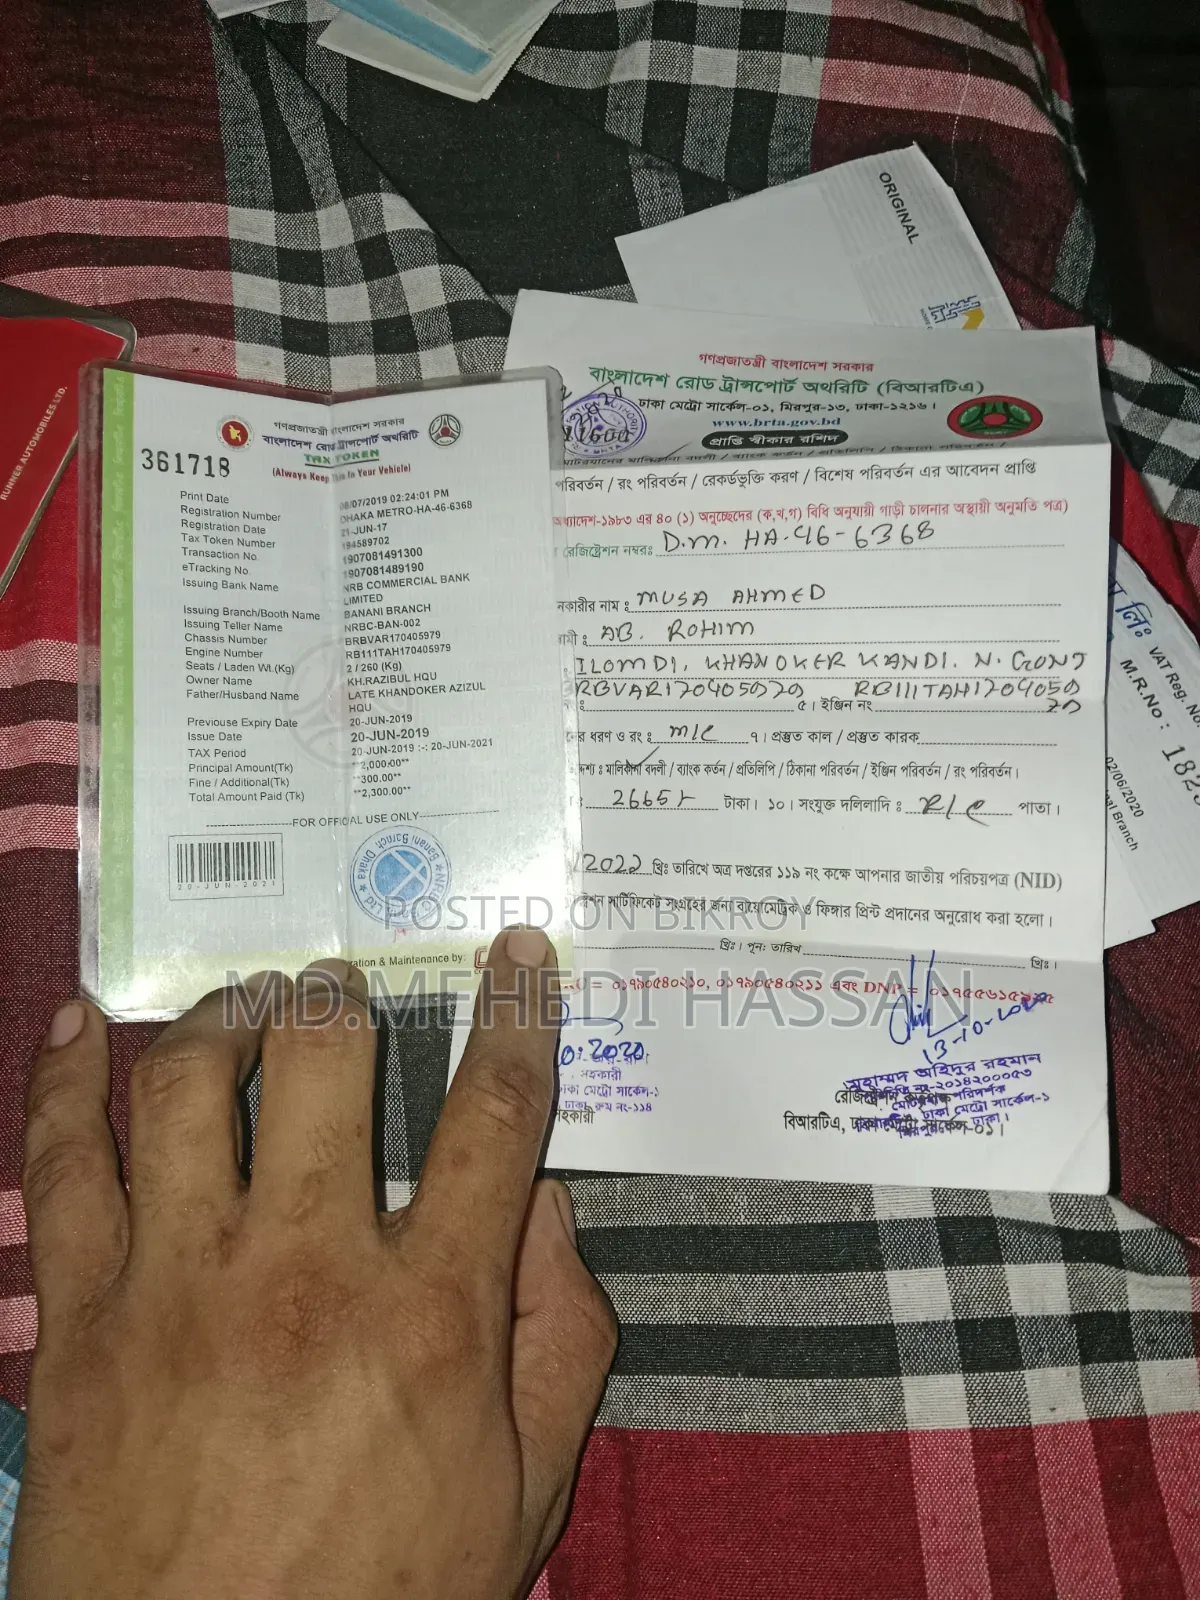 ORIGINAL
RUNNER AUTOMOBILES LTD.
গণপ্রজাতন্ত্রী বাংলাদেশ সরকার
বাংলাদেশ রোড ট্রান্সপোর্ট অথরিটি
TAX TOKEN
(Always Keep This In Your Vehicle)
361718
Print Date 08/07/2019 02:24:01 PM
Registration Number DHAKA METRO-HA-46-6368
Registration Date 21-JUN-17
Tax Token Number 194589702
Transaction No. 1907081491300
eTracking No. 1907081489190
Issuing Bank Name NRB COMMERCIAL BANK
LIMITED
Issuing Branch/Booth Name BANANI BRANCH
Issuing Teller Name NRBC-BAN-002
Chassis Number BRBVAR170405979
Engine Number RB111TAH170405979
Seats / Laden Wt.(Kg) 2 / 260 (Kg)
Owner Name KH.RAZIBUL HQU
Father/Husband Name LATE KHANDOKER AZIZUL
HQU
Previouse Expiry Date 20-JUN-2019
Issue Date 20-JUN-2019
TAX Period 20-JUN-2019 :-: 20-JUN-2021
Principal Amount(Tk) **2,000.00**
Fine / Additional(Tk) **300.00**
Total Amount Paid (Tk) **2,300.00**
FOR OFFICIAL USE ONLY
20-JUN-2021
& Maintenance by:
গণপ্রজাতন্ত্রী বাংলাদেশ সরকার
বাংলাদেশ রোড ট্রান্সপোর্ট অথরিটি (বিআরটিএ)
ঢাকা মেট্রো সার্কেল-০১, মিরপুর-১৩, ঢাকা-১২১৬।
www.brta.gov.bd
প্রাপ্তি স্বীকার রশিদ
পরিবর্তন / রং পরিবর্তন / রেকর্ডভুক্তি করণ / বিশেষ পরিবর্তন এর আবেদন প্রাপ্তি
অধ্যাদেশ-১৯৮৩ এর ৪০ (১) অনুচ্ছেদের (ক,খ,গ) বিধি অনুযায়ী গাড়ী চালনার অস্থায়ী অনুমতি পত্র)
রেজিষ্ট্রেশন নম্বরঃ D.M. HA-46-6368
নাম : MUSA AHMED
AB. ROHIM
ILOMDI, KHANOKER KANDI. N. GONJ
RBVAR170405979 ৫। ইঞ্জিন নং RB111TAH1704059
79
ধরণ ও রং : M/C ৭। প্রস্তুত কাল / প্রস্তুত কারক
মালিকানা বদলী / ব্যাংক কর্তন / প্রতিলিপি / ঠিকানা পরিবর্তন / ইঞ্জিন পরিবর্তন / রং পরিবর্তন।
টাকা। ১০। সংযুক্ত দলিলাদি : পাতা।
/2022 খ্রিঃ তারিখে অত্র দপ্তরের ১১৯ নং কক্ষে আপনার জাতীয় পরিচয়পত্র (NID)
সার্টিফিকেট সংগ্রহের জন্য বায়োমেট্রিক ও ফিঙ্গার প্রিন্ট প্রদানের অনুরোধ করা হলো।
খ্রিঃ। পুনঃ তারিখ খ্রিঃ।
= ০১৭৯০৫৪০২১০, ০১৭৯০৫৪০২১১ এবং DNP =
13-10-2020
মেট্রো সার্কেল-১
লিঃ VAT Reg. No.
M.R.No :
02/06/2020
Branch
POSTED ON BIKROY
MD.MEHEDI HASSAN